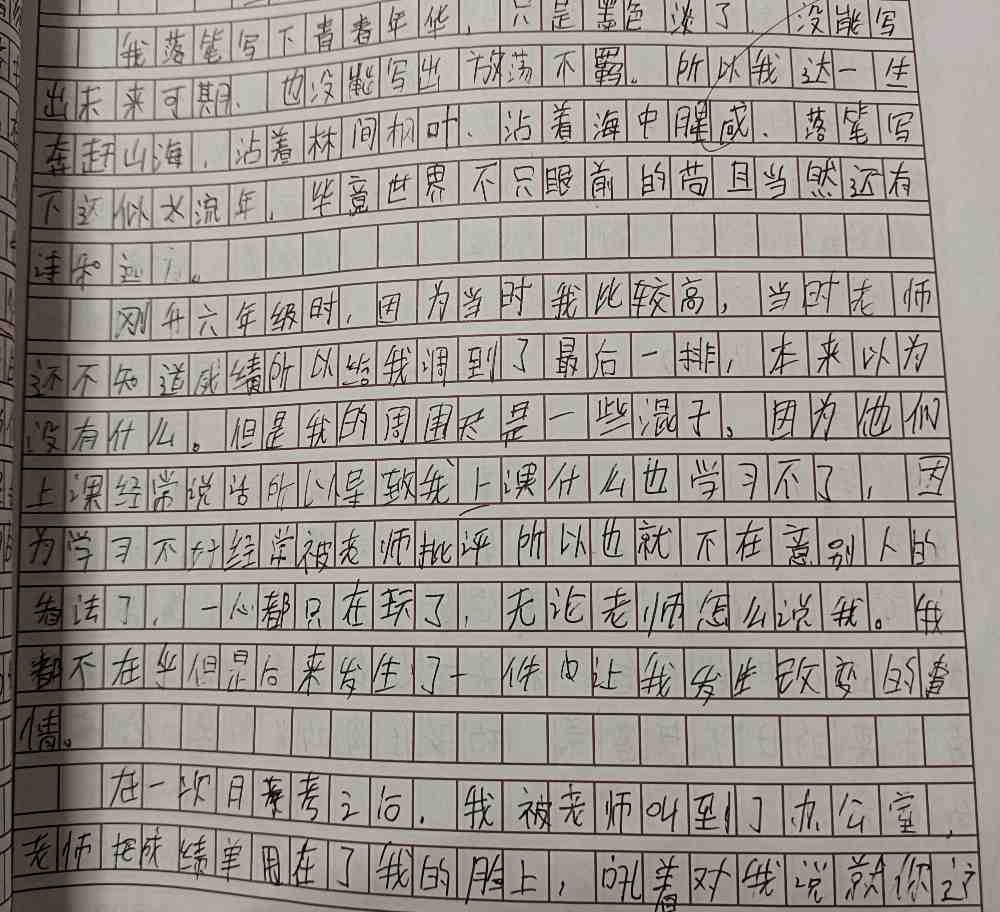 我落笔写下青春年华，只是墨色淡了，没能写
出未来可期、也没能写出放荡不羁。所以我这一生
奔赶山海，沾着林间枫叶、沾着海中腥咸、落笔写
下这似水流年，毕竟世界不只眼前的苟且当然还有
诗和远方。
刚升六年级时，因为当时我比较高，当时老师
还不知道成绩所以给我调到了最后一排，本来以为
没有什么。但是我的周围尽是一些混子。因为他们
上课经常说话所以导致我上课什么也学习不了，因
为学习不好经常被老师批评所以也就不在意别人的
看法了，一心都只在玩了，无论老师怎么说我。我
都不在乎但是后来发生了一件 让我发生改变的事
情。
在一次月考之后，我被老师叫到了办公室，
老师把成绩单甩在了我的脸上，吼着对我说就你这